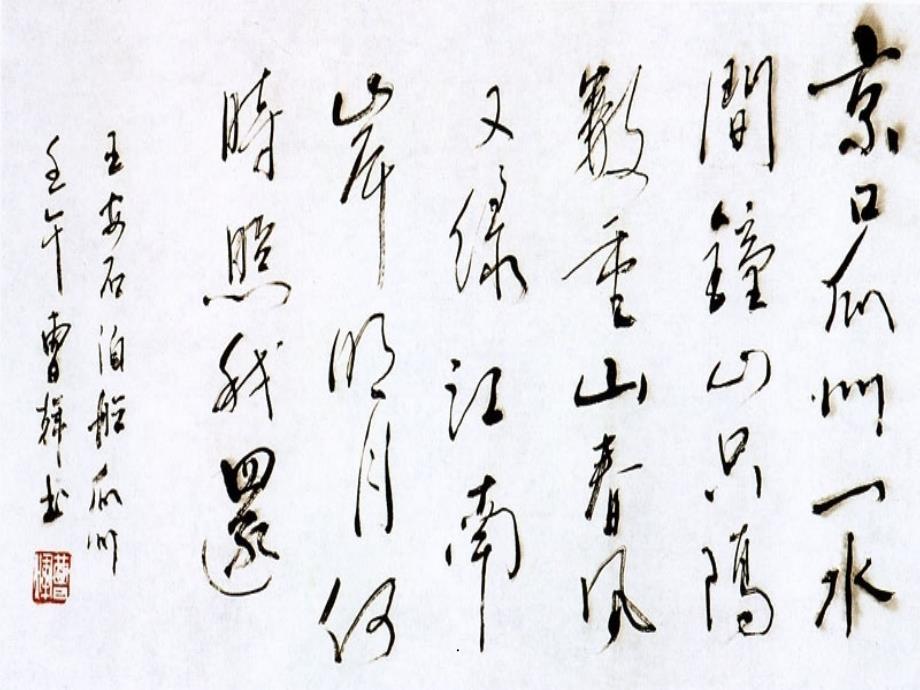 京口瓜州一水
間鐘山只隔
數重山春风
又綠江南
岸明月何
時照我還
王安石泊船瓜州
壬午曹輝书